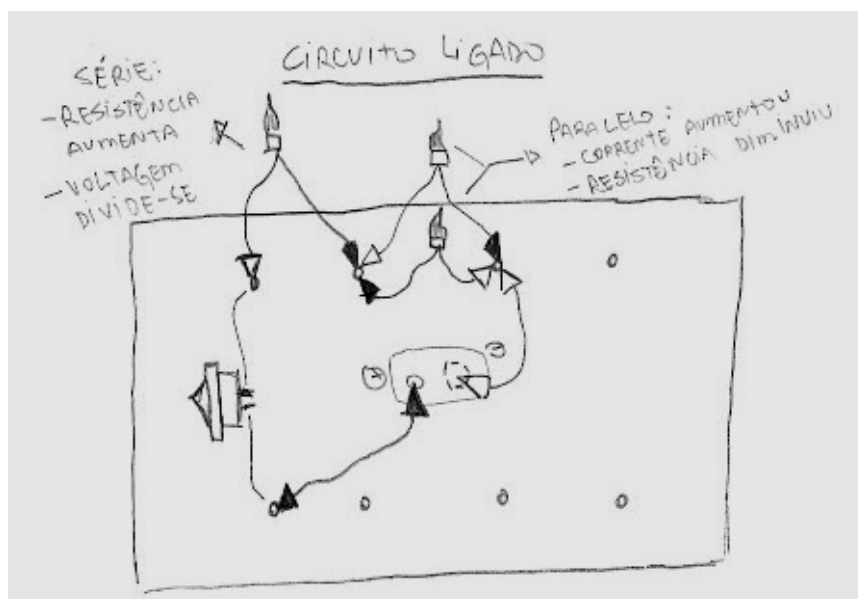 CIRCUITO LIGADO
SÉRIE:
-RESISTÊNCIA
AUMENTA
-VOLTAGEM
DIVIDE-SE
PARALELO:
-CORRENTE AUMENTOU
-RESISTÊNCIA DIMÍNUIU